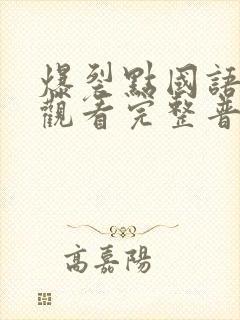 爆裂點國語
觀看完整普
高嘉陽